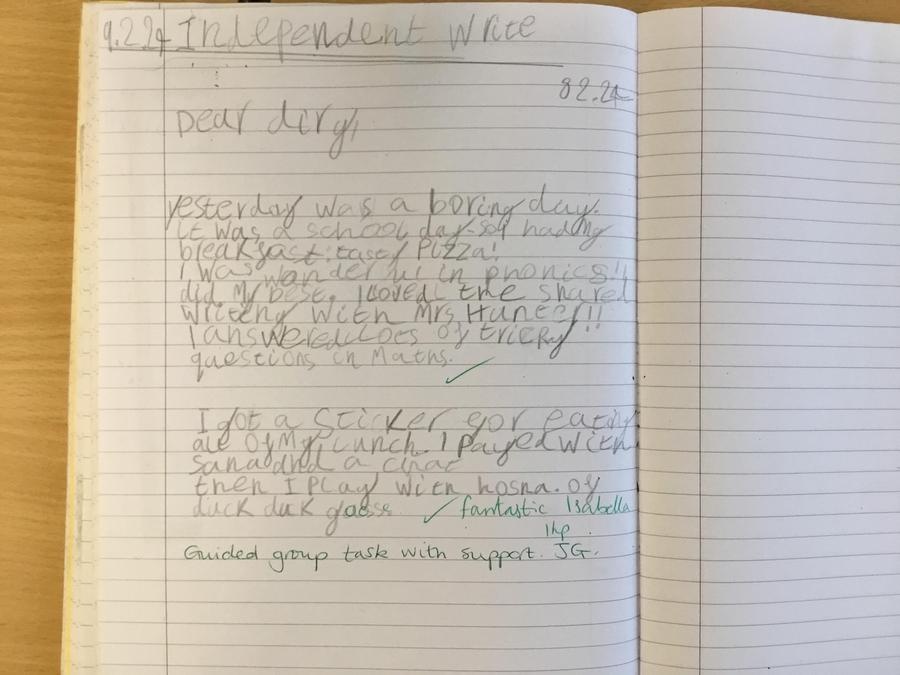 9.2.24 Independent Write
8 2.24
Dear diry,
Yesterday was a boring day.
it was a school day. hading
breakfast: tasty Pizza!
I was wanderful in phonics!! I
did My best. I loved the shared
writeng with Mrs Hunter!!
I answered lots of tricky!!
questions in Maths.
I got a Sticker for eating
all of My lunch. I Payed with
Sana and a
then I Play with hosna. of
duck duk goose
fantastic Isabella
1hp.
Guided group task with support. JG.